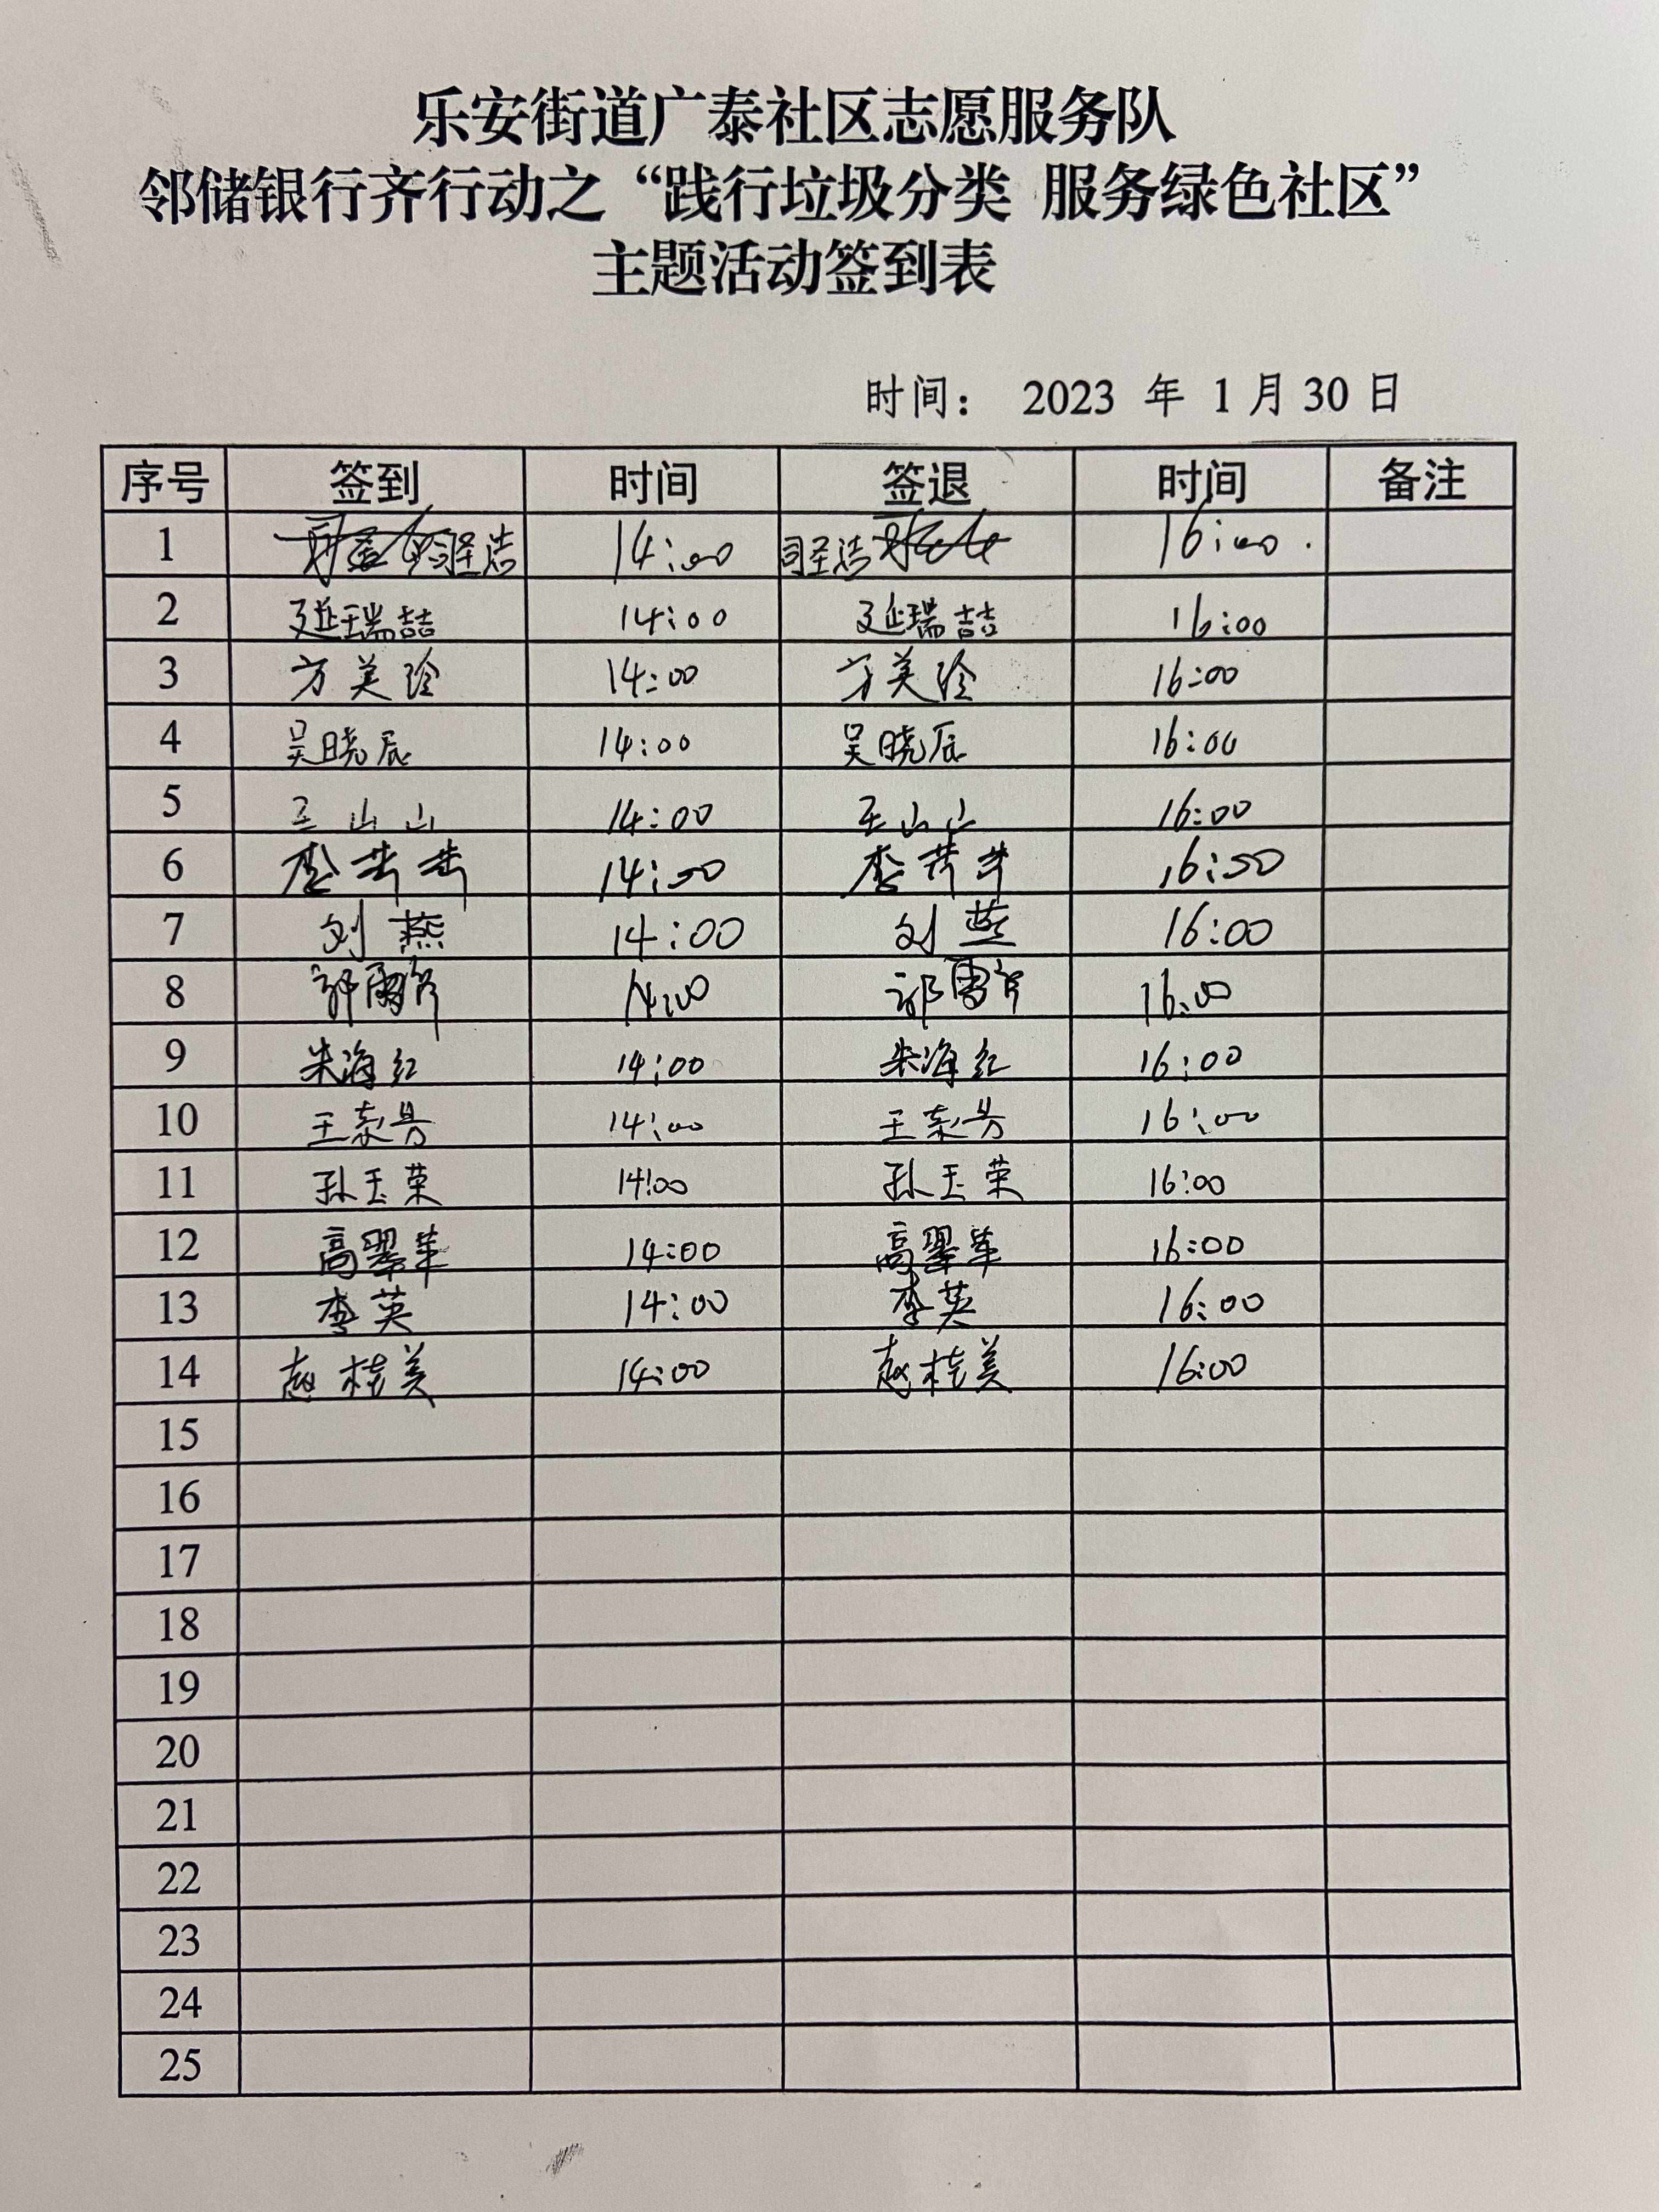 乐安街道广泰社区志愿服务队
邻储银行齐行动之“践行垃圾分类 服务绿色社区”
主题活动签到表
时间： 2023 年 1 月 30 日
序号 签到 时间 签退 时间 备注
1 司圣浩 14:00 司圣浩 16:00
2 延瑞喆 14:00 延瑞喆 16:00
3 方美玲 14:00 方美玲 16:00
4 吴晓辰 14:00 吴晓辰 16:00
5 王山山 14:00 王山山 16:00
6 李 14:00 李 16:00
7 刘燕 14:00 刘燕 16:00
8 14:00 16:00
9 朱海红 14:00 朱海红 16:00
10 王 14:00 王 16:00
11 孙玉荣 14:00 孙玉荣 16:00
12 高翠苹 14:00 高翠苹 16:00
13 李英 14:00 李英 16:00
14 赵桂美 14:00 赵桂美 16:00
15
16
17
18
19
20
21
22
23
24
25